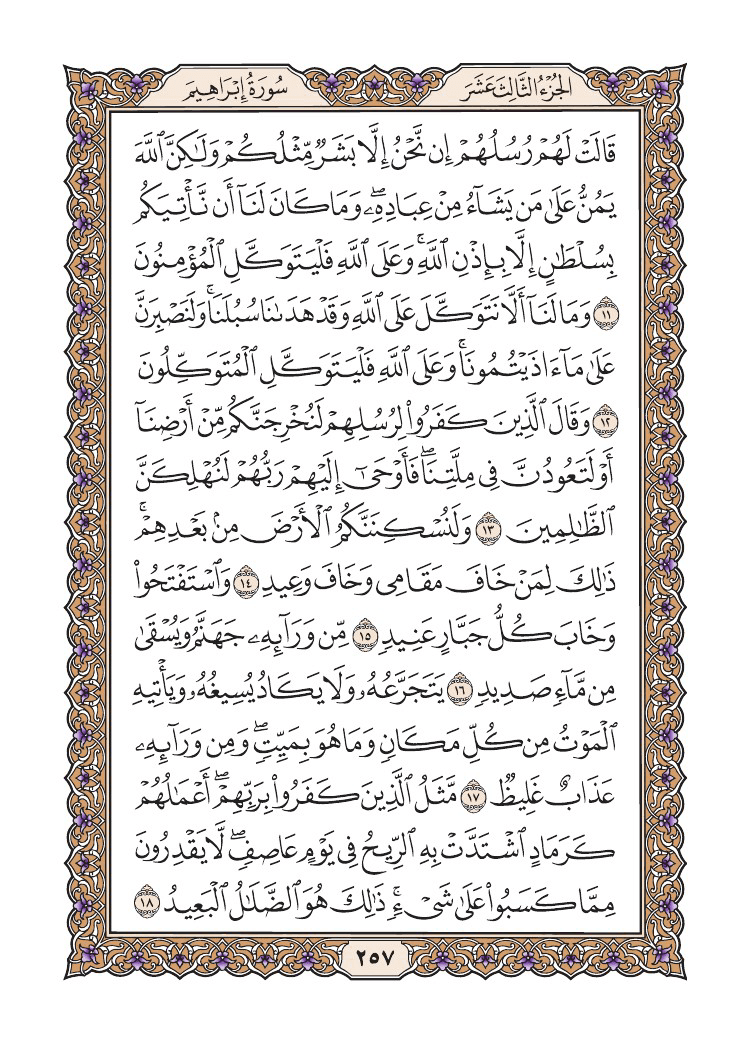 الجُزْءُ الثَّالِثَ عَشَرَ
سُورَةُ إِبْرَاهِيم
قَالَتْ لَهُمْ رُسُلُهُمْ إِن نَّحْنُ إِلَّا بَشَرٌ مِّثْلُكُمْ وَلَٰكِنَّ ٱللَّهَ
يَمُنُّ عَلَىٰ مَن يَشَآءُ مِنْ عِبَادِهِۦۖ وَمَا كَانَ لَنَآ أَن نَّأْتِيَكُم
بِسُلْطَٰنٍ إِلَّا بِإِذْنِ ٱللَّهِۚ وَعَلَى ٱللَّهِ فَلْيَتَوَكَّلِ ٱلْمُؤْمِنُونَ
١١ وَمَا لَنَآ أَلَّا نَتَوَكَّلَ عَلَى ٱللَّهِ وَقَدْ هَدَىٰنَا سُبُلَنَاۚ وَلَنَصْبِرَنَّ
عَلَىٰ مَآ ءَاذَيْتُمُونَاۚ وَعَلَى ٱللَّهِ فَلْيَتَوَكَّلِ ٱلْمُتَوَكِّلُونَ
١٢ وَقَالَ ٱلَّذِينَ كَفَرُوا۟ لِرُسُلِهِمْ لَنُخْرِجَنَّكُم مِّنْ أَرْضِنَآ
أَوْ لَتَعُودُنَّ فِى مِلَّتِنَاۖ فَأَوْحَىٰٓ إِلَيْهِمْ رَبُّهُمْ لَنُهْلِكَنَّ
ٱلظَّٰلِمِينَ ١٣ وَلَنُسْكِنَنَّكُمُ ٱلْأَرْضَ مِنۢ بَعْدِهِمْۚ
ذَٰلِكَ لِمَنْ خَافَ مَقَامِى وَخَافَ وَعِيدِ ١٤ وَٱسْتَفْتَحُوا۟
وَخَابَ كُلُّ جَبَّارٍ عَنِيدٍ ١٥ مِّن وَرَآئِهِۦ جَهَنَّمُ وَيُسْقَىٰ
مِن مَّآءٍ صَدِيدٍ ١٦ يَتَجَرَّعُهُۥ وَلَا يَكَادُ يُسِيغُهُۥ وَيَأْتِيهِ
ٱلْمَوْتُ مِن كُلِّ مَكَانٍ وَمَا هُوَ بِمَيِّتٍۖ وَمِن وَرَآئِهِۦ
عَذَابٌ غَلِيظٌ ١٧ مَّثَلُ ٱلَّذِينَ كَفَرُوا۟ بِرَبِّهِمْۖ أَعْمَٰلُهُمْ
كَرَمَادٍ ٱشْتَدَّتْ بِهِ ٱلرِّيحُ فِى يَوْمٍ عَاصِفٍۖ لَّا يَقْدِرُونَ
مِمَّا كَسَبُوا۟ عَلَىٰ شَىْءٍۚ ذَٰلِكَ هُوَ ٱلضَّلَٰلُ ٱلْبَعِيدُ ١٨
٢٥٧